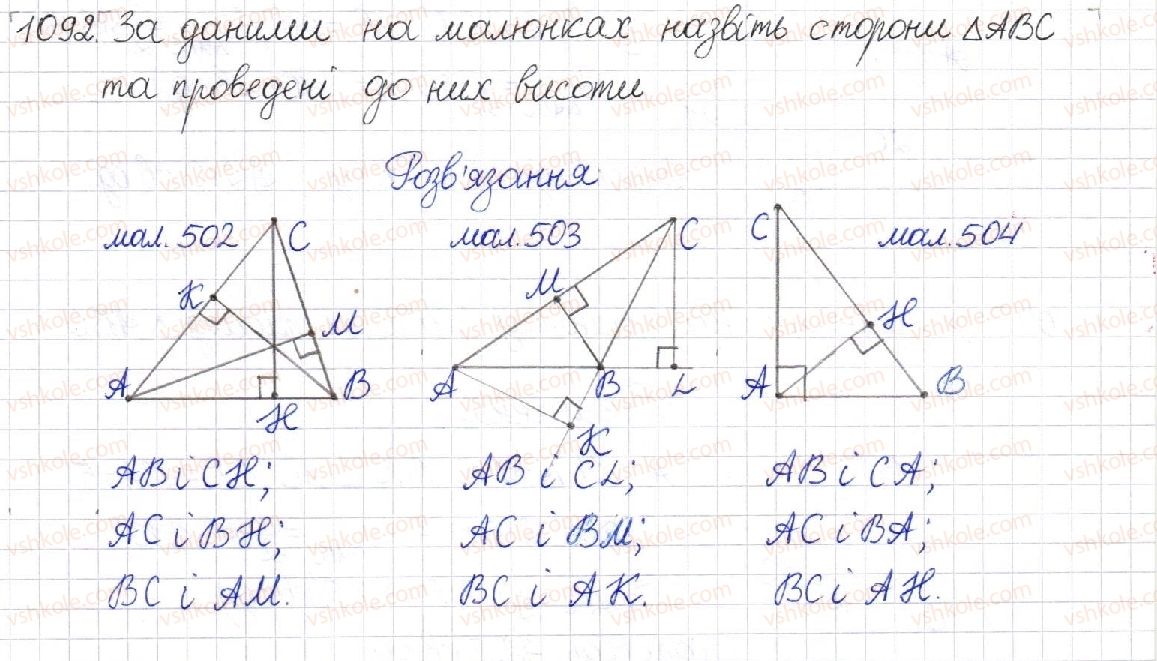 1092. За даними на малюнках назвіть сторони △ABC
та проведені до них висоти
Розв'язання
мал. 502
C
K
M
A
B
H
мал. 503
C
M
A
B
L
K
C
мал. 504
H
A
B
AB і CH;
AC і BH;
BC і AM.
AB і CL;
AC і BM;
BC і AK.
AB і CA;
AC і BA;
BC і AH.
vshkole.com